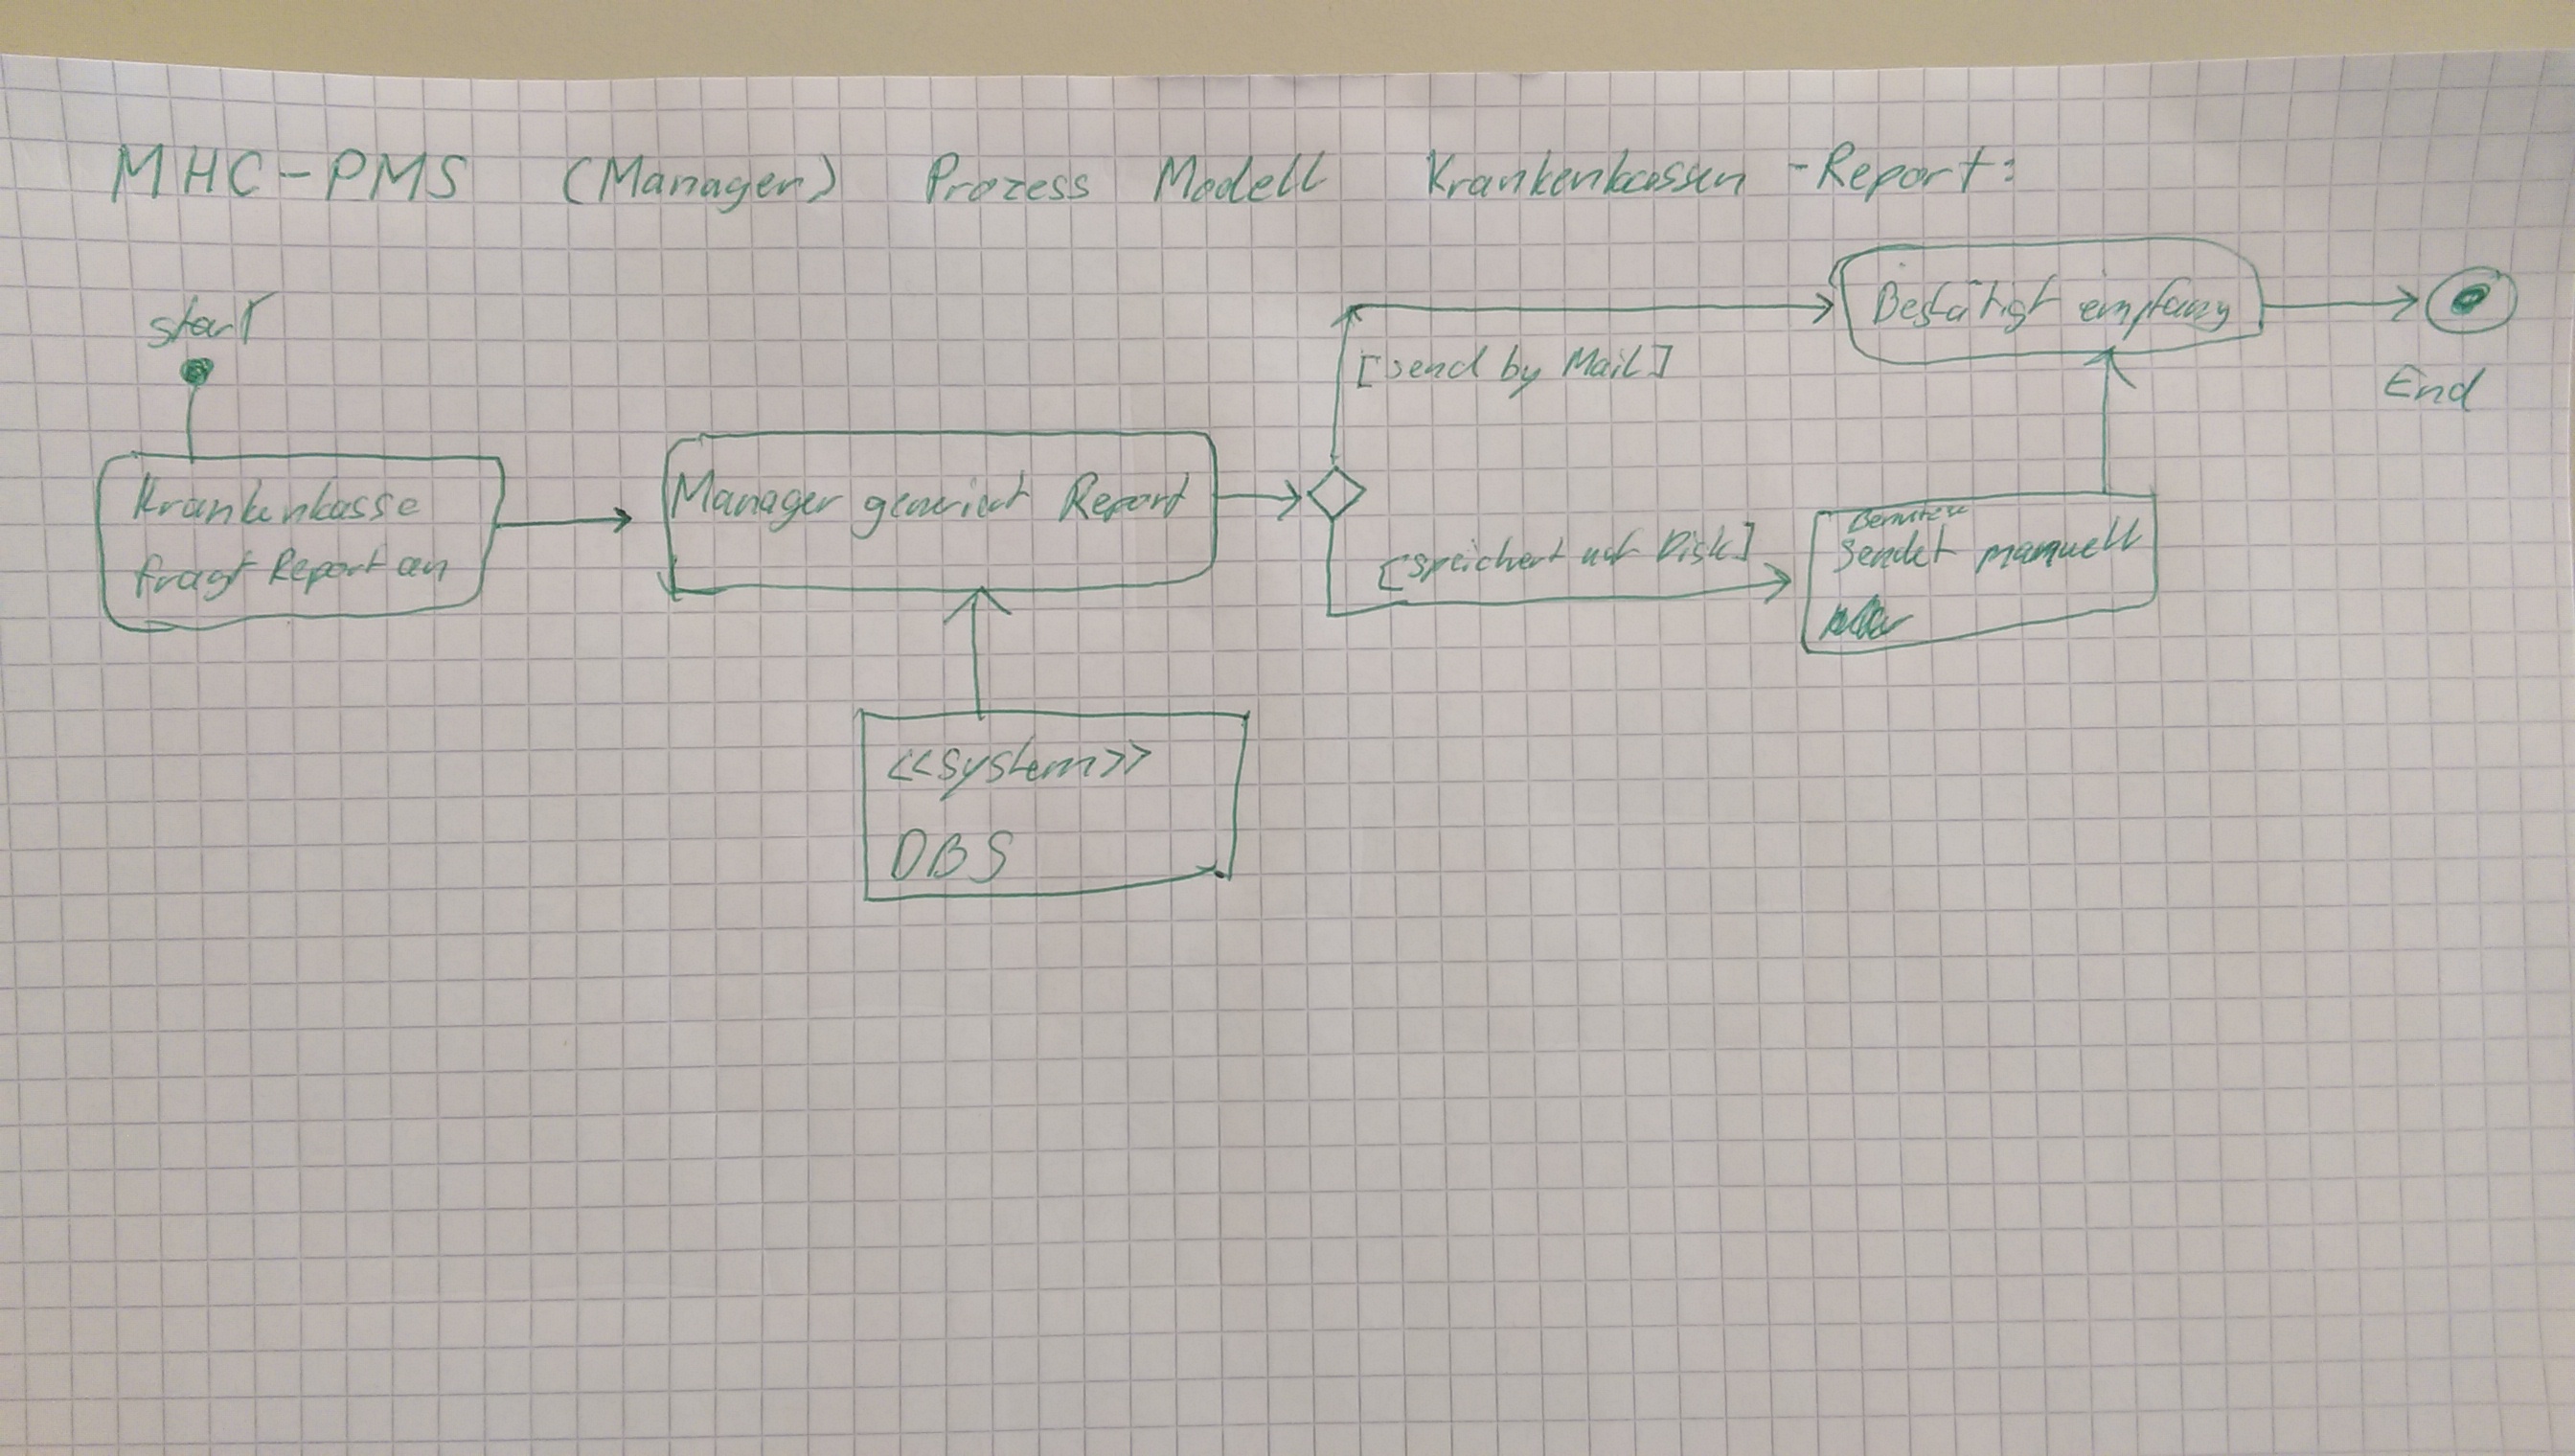 MHC-PMS (Manager) Prozess Modell Krankenkassen-Report:
start
Krankenkasse
fragt Report an
Manager generiert Report
<<system>>
DBS
[send by Mail]
[speichert auf Disk]
Benutzer
sendet manuell
Bestätigt empfang
End